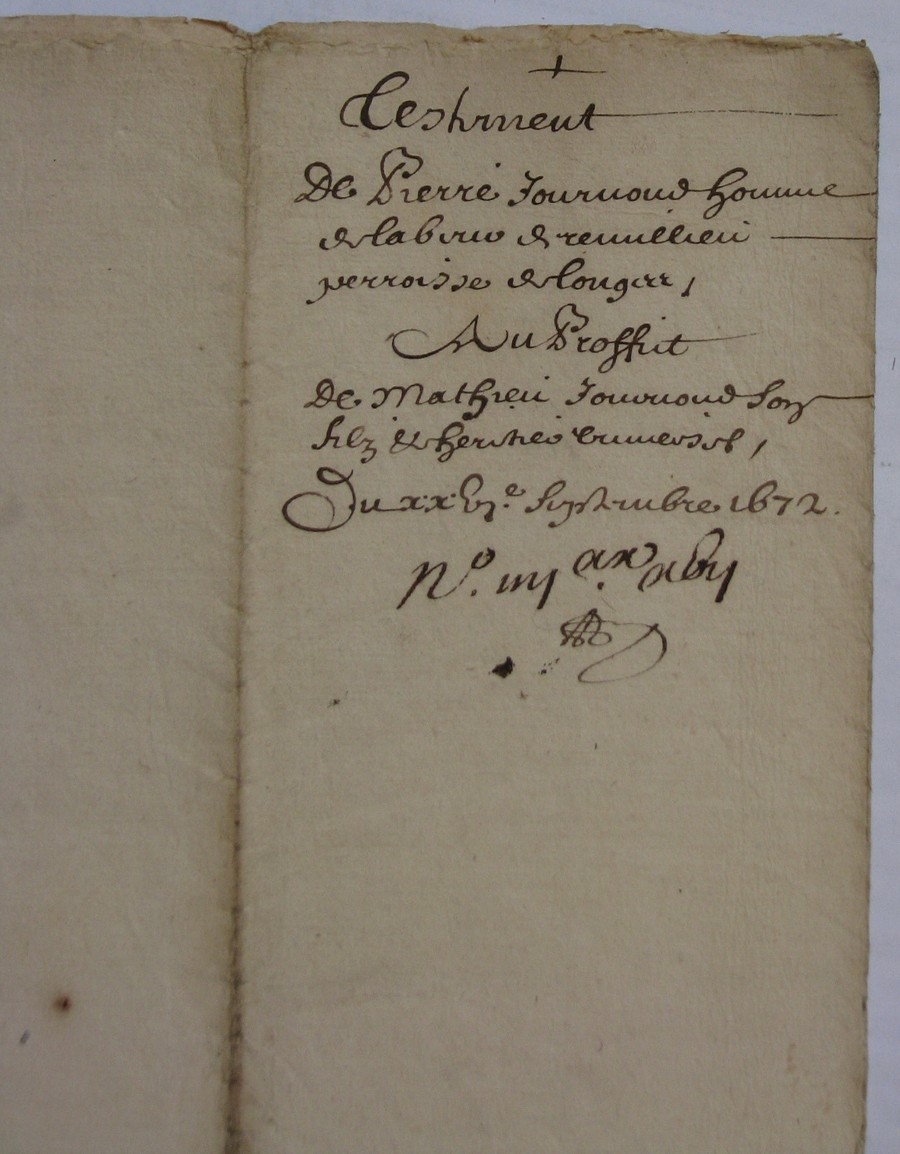 Testament
De Pierre Journoud homme
de labeur de remillieu
perroisse de longes,
Au Proffict
De Mathieu Journoud son
filz & heritier universel,
Du xxvj.e Septembre 1672.
No. iiij xvj